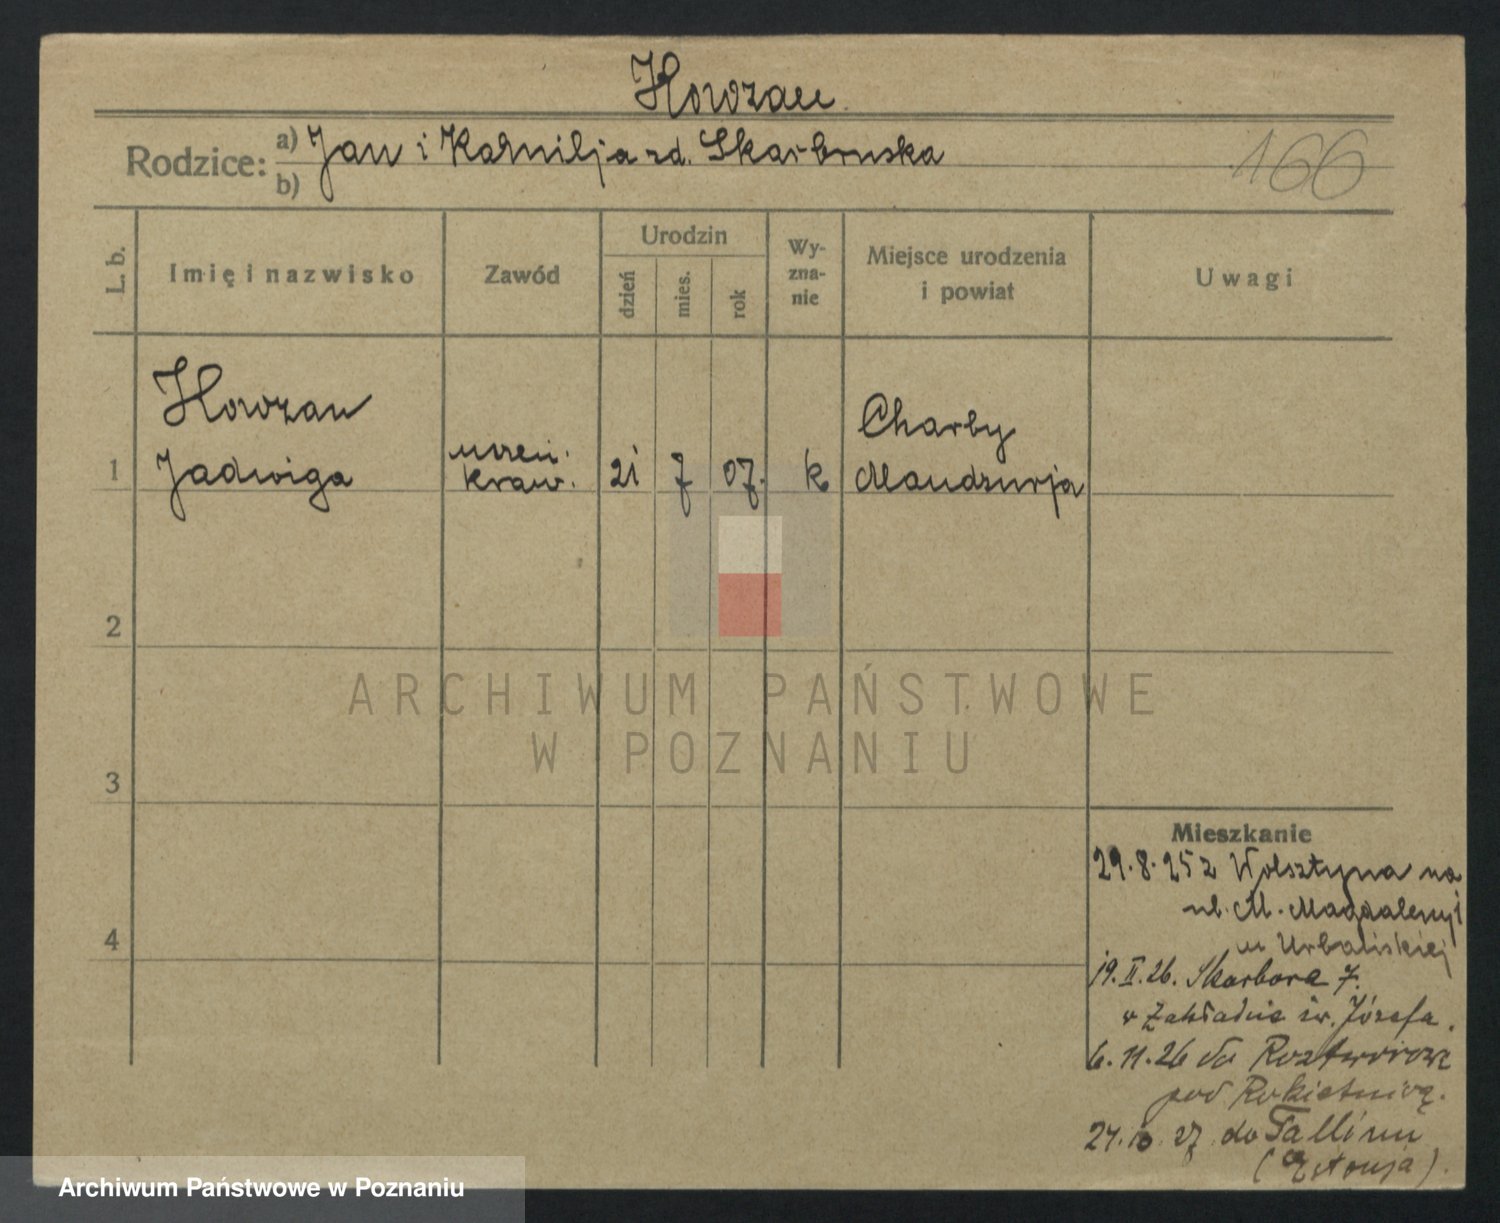 Howozan
Rodzice: a) Jan i Kornilja zd. Skarbruska
b)
166
L. b.
Imię i nazwisko
Zawód
Urodzin
dzień
mies.
rok
Wy-
zna-
nie
Miejsce urodzenia
i powiat
Uwagi
Howozan
Jadwiga
uczen.
kraw.
21 7 07. k
Charby
Mandzurja
1
2
3
4
ARCHIWUM PAŃSTWOWE
W POZNANIU
Mieszkanie
29.8.25 z Wolsztyna na
ul. M. Magdaleny 1
u Urbańskiej
19.II.26. Skarbowa 7.
w Zakładzie św. Józefa.
6.11.26 do
pod Rokietnicą.
24.10.27 do Tallinu
(Estonja).
Archiwum Państwowe w Poznaniu